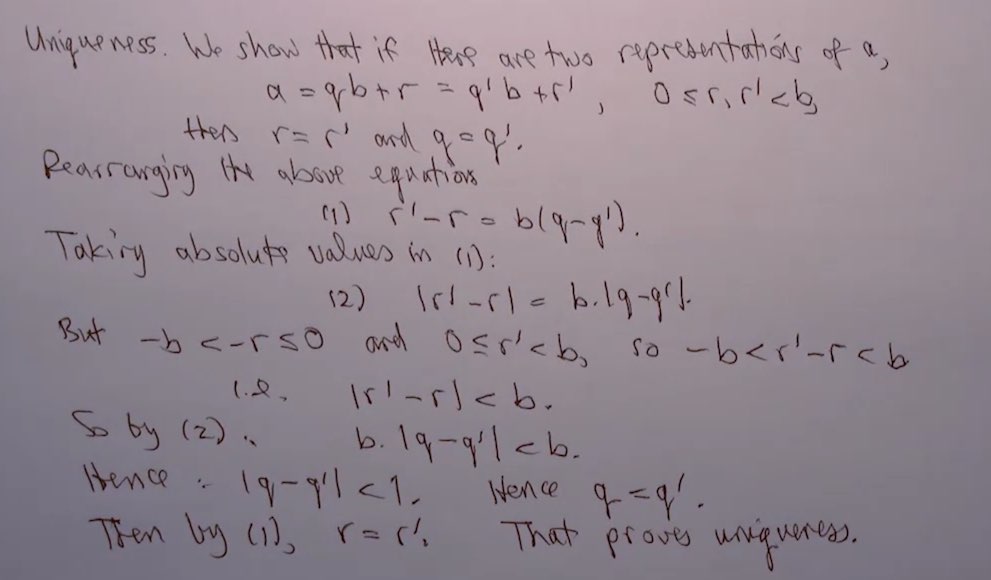 Uniqueness. We show that if there are two representations of a,
a = qb + r = q'b + r' , 0 ≤ r, r' < b,
then r = r' and q = q'.
Rearranging the above equations
(1) r' - r = b(q - q').
Taking absolute values in (1):
(2) |r' - r| = b.|q - q'|.
But -b < -r ≤ 0 and 0 ≤ r' < b, so -b < r' - r < b
i.e. |r' - r| < b.
So by (2) : b.|q - q'| < b.
Hence : |q - q'| < 1. Hence q = q'.
Then by (1), r = r'. That proves uniqueness.